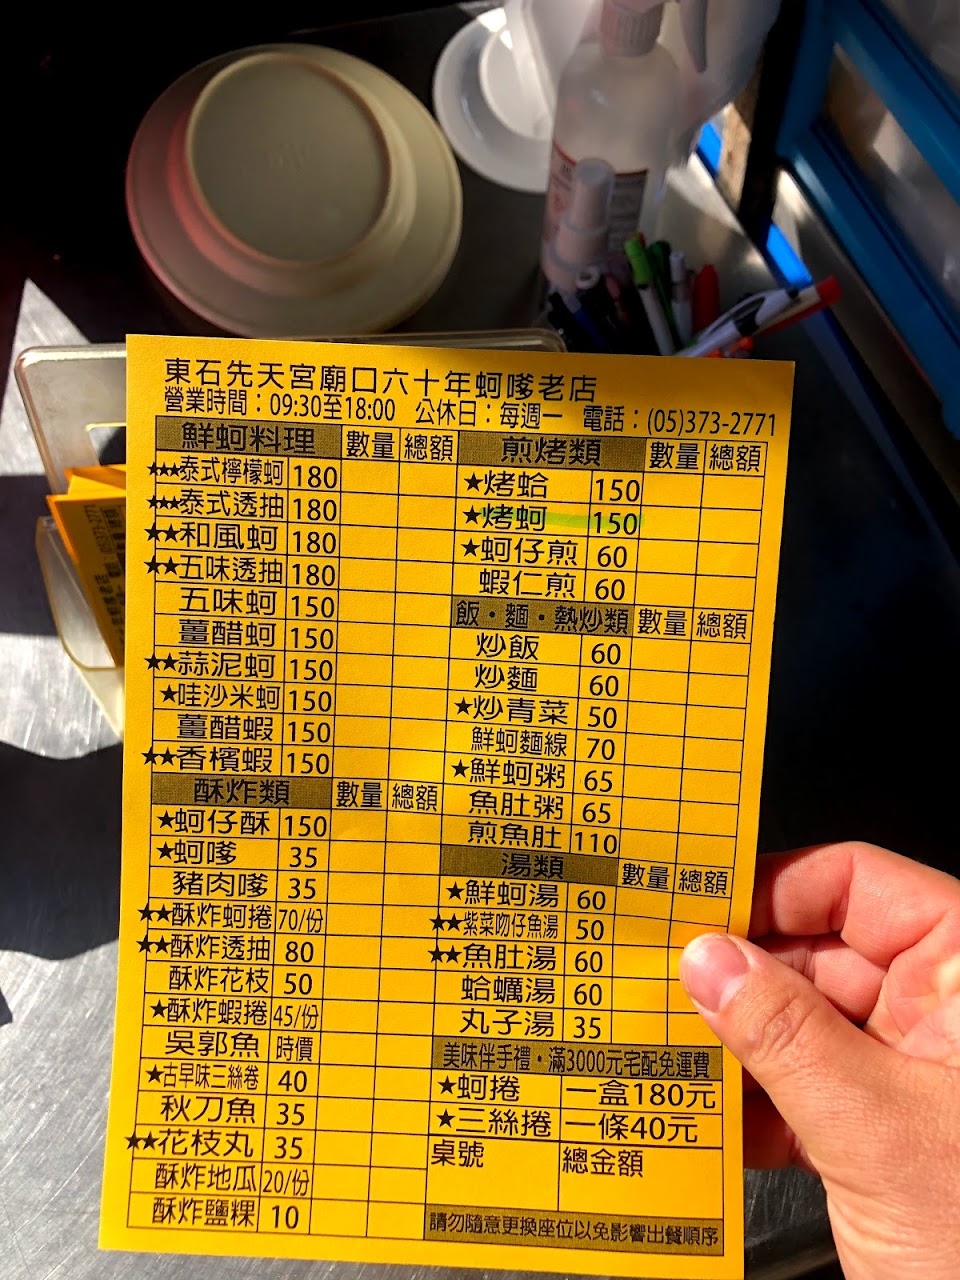 東石先天宮廟口六十年蚵嗲老店
營業時間：09:30至18:00 公休日：每週一 電話：(05)373-2771
鮮蚵料理 數量 總額
★★★泰式檸檬蚵 180
★★★泰式透抽 180
★★和風蚵 180
★★五味透抽 180
五味蚵 150
薑醋蚵 150
★★蒜泥蚵 150
★哇沙米蚵 150
薑醋蝦 150
★★香檳蝦 150
酥炸類 數量 總額
★蚵仔酥 150
★蚵嗲 35
豬肉嗲 35
★★酥炸蚵捲 70/份
★★酥炸透抽 80
酥炸花枝 50
★酥炸蝦捲 45/份
吳郭魚 時價
★古早味三絲卷 40
秋刀魚 35
★★花枝丸 35
酥炸地瓜 20/份
酥炸鹽粿 10
煎烤類 數量 總額
★烤蛤 150
★烤蚵 150
★蚵仔煎 60
蝦仁煎 60
飯・麵・熱炒類 數量 總額
炒飯 60
炒麵 60
★炒青菜 50
鮮蚵麵線 70
★鮮蚵粥 65
魚肚粥 65
煎魚肚 110
湯類 數量 總額
★鮮蚵湯 60
★★紫菜吻仔魚湯 50
★★魚肚湯 60
蛤蠣湯 60
丸子湯 35
美味伴手禮・滿3000元宅配免運費
★蚵捲 一盒180元
★三絲捲 一條40元
桌號 總金額
請勿隨意更換座位以免影響出餐順序